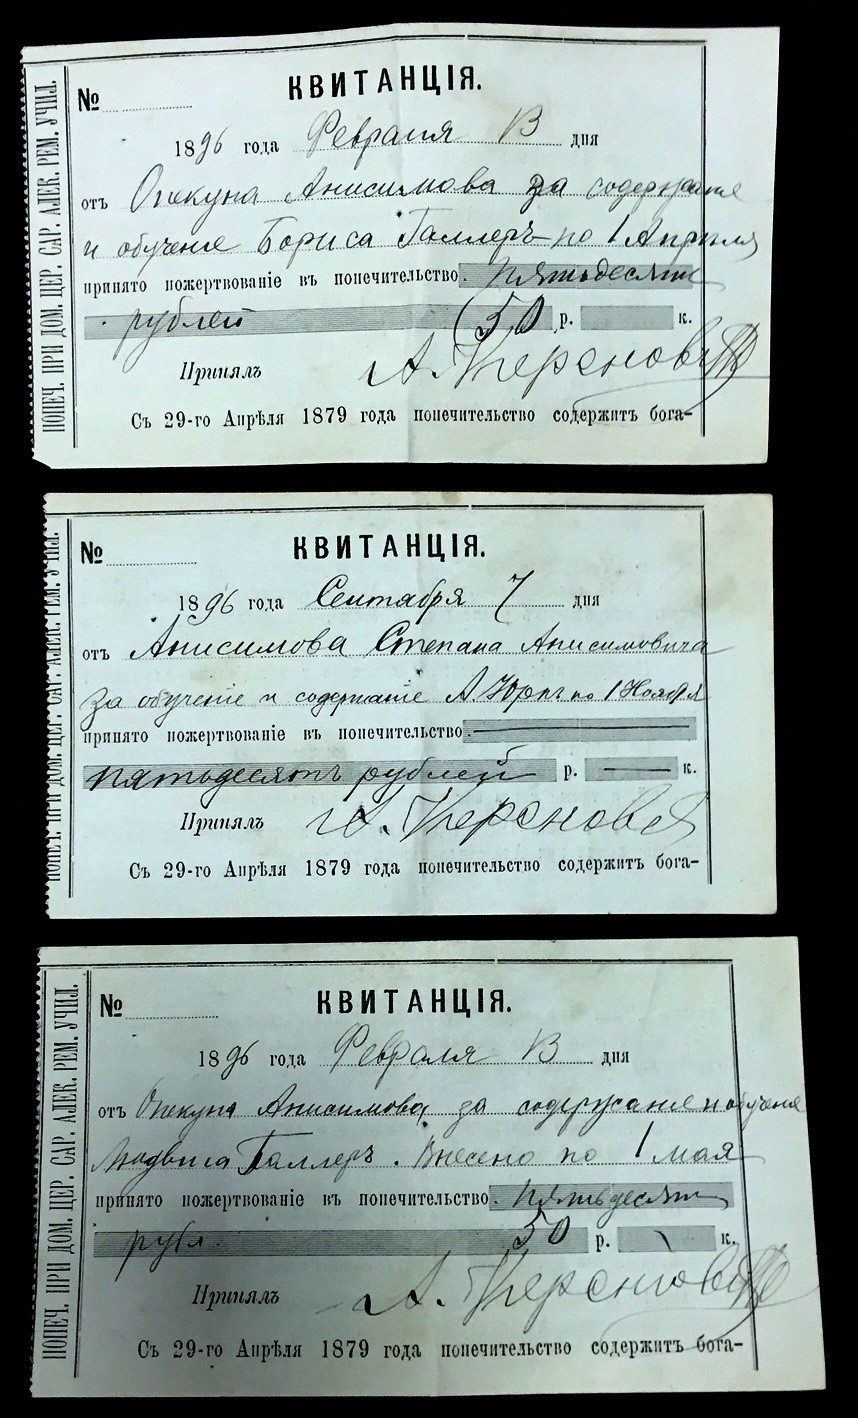 ПОПЕЧ. ПРИ ДОМ. ЦЕР. САР. АЛЕК. РЕМ. УЧИЛ.
№
КВИТАНЦІЯ.
1896 года Февраля 13 дня
отъ Опекуна Анисимова за содержание
и обучение Бориса Галлеръ по 1 Апреля
принято пожертвованіе въ попечительство пятьдесят
рублей 50 р. к.
Принялъ А.
Съ 29-го Апрѣля 1879 года попечительство содержитъ бога-
ПОПЕЧ. ПРИ ДОМ. ЦЕР. САР. АЛЕК. РЕМ. УЧИЛ.
№
КВИТАНЦІЯ.
1896 года Сентября 7 дня
отъ Анисимова Степана Анисимовича
за обучение и содержание А. по 1 Ноября
принято пожертвованіе въ попечительство
пятьдесятъ рублей р. к.
Принялъ А.
Съ 29-го Апрѣля 1879 года попечительство содержитъ бога-
ПОПЕЧ. ПРИ ДОМ. ЦЕР. САР. АЛЕК. РЕМ. УЧИЛ.
№
КВИТАНЦІЯ.
1896 года Февраля 13 дня
отъ Опекуна Анисимова, за содержание и обучение
Людвига Галлеръ. Внесено по 1 мая
принято пожертвованіе въ попечительство пятьдесят
рубл. 50 р. к.
Принялъ А.
Съ 29-го Апрѣля 1879 года попечительство содержитъ бога-